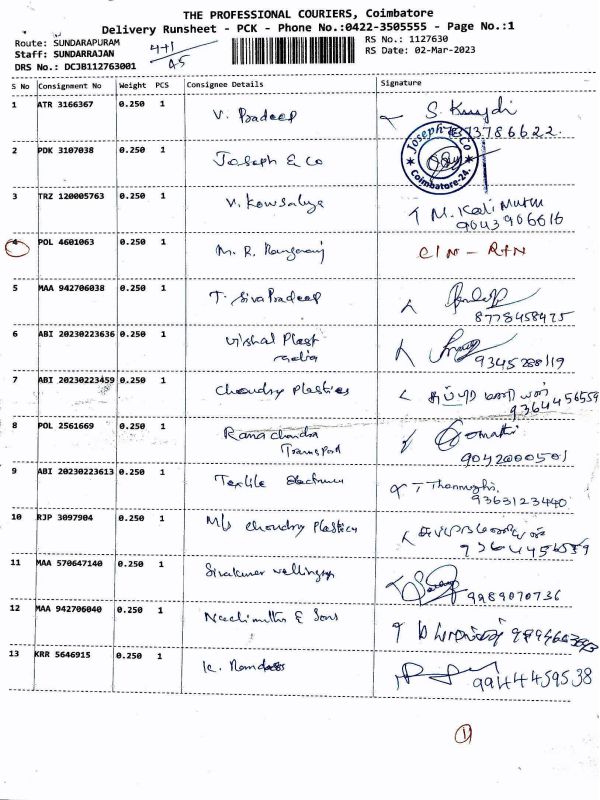 THE PROFESSIONAL COURIERS, Coimbatore
Delivery Runsheet - PCK - Phone No.:0422-3505555 - Page No.:1
Route: SUNDARAPURAM
4+1
RS No.: 1127630
Staff: SUNDARRAJAN
RS Date: 02-Mar-2023
DRS No.: DCJB112763001
45
S No Consignment No Weight PCS Consignee Details Signature
1 ATR 3166367 0.250 1 V. Pradeep
2 PDK 3107038 0.250 1 Joseph & Co
Joseph & Co
Coimbatore-24.
3 TRZ 120005763 0.250 1 V. Kowsalya M. Kali Muthu
9043906616
4 POL 4601063 0.250 1 M. R. C/N - R+N
5 MAA 942706038 0.250 1 T. Siva Pradeep
8778458475
6 ABI 20230223636 0.250 1 Vishal Plast
7 ABI 20230223459 0.250 1 Choudry Plastics
9364456559
8 POL 2561669 0.250 1 Rama chandra Gomathi
Transport 9042000501
9 ABI 20230223613 0.250 1 Textile T Thanmozhi
9363123440
10 RJP 3097904 0.250 1 M/s Choudry Plastics
9364456559
11 MAA 570647140 0.250 1 Sivakumar
9989070736
12 MAA 942706040 0.250 1 Nachimuthu & Sons
13 KRR 5646915 0.250 1 K. Ramdass
9944459538
1